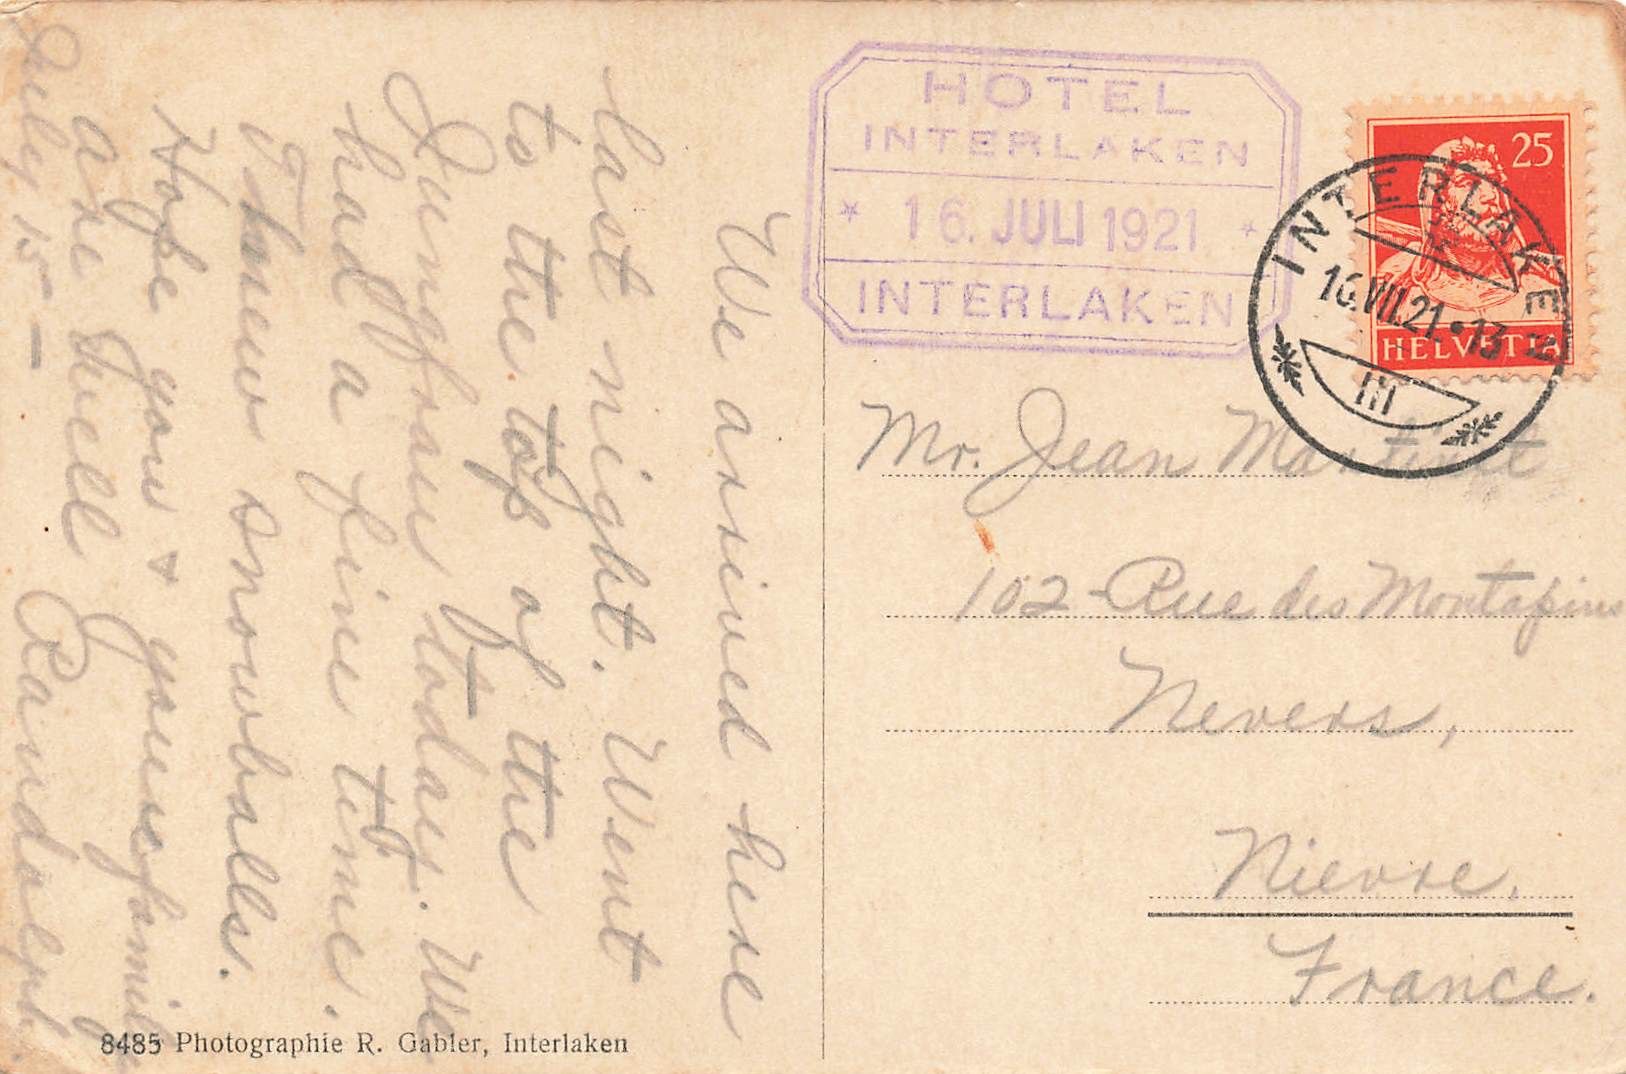 We arrived here
last night. Went
to the top of the
Jungfrau today. We
had a fine time.
Threw snowballs.
Hope you & your family
are well Randolph.
July 15 —
HOTEL
INTERLAKEN
* 16. JULI 1921 *
INTERLAKEN
25
HELVETIA
INTERLAKEN
16.VII.21•13
III
Mr. Jean
102 - Rue des Montapins
Nevers,
Nievre.
France.
8485 Photographie R. Gabler, Interlaken